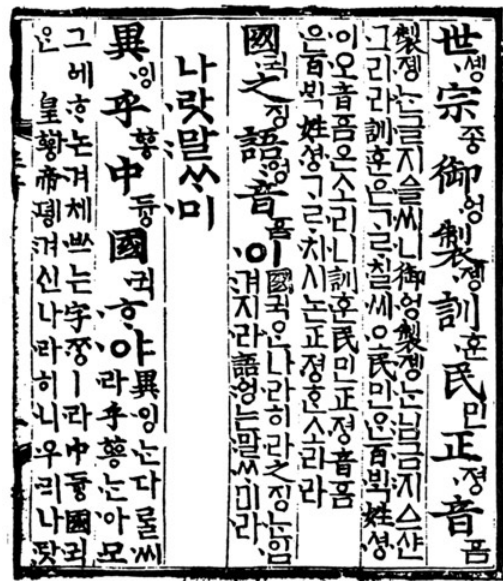 世솅宗종御ᅌᅥᆼ製졩訓훈民민正져ᇰ音ᅙᅳᆷ
製졩는글지ᅀᅳᆯ씨니御ᅌᅥᆼ製졩는님금지ᅀᅳ샨
그리라訓훈은ᄀᆞᄅᆞ칠씨오民민ᄋᆞᆫ百ᄇᆡᆨ姓셔ᇰ
이오音ᅙᅳᆷ은소리니訓훈民민正져ᇰ音ᅙᅳᆷ
은百ᄇᆡᆨ姓셔ᇰᄀᆞᄅᆞ치시논正져ᇰᄒᆞᆫ소리라
國귁之징語ᅌᅥᆼ音ᅙᅳᆷ이
國귁ᄋᆞᆫ나라히라之징ᄂᆞᆫ입
겨지라語ᅌᅥᆼ는말ᄊᆞ미라
나랏말ᄊᆞ미
異잉乎ᅘᅩᆼ中듀ᇰ國귁ᄒᆞ야
異잉ᄂᆞᆫ다ᄅᆞᆯ씨
라乎ᅘᅩᆼᄂᆞᆫ아모
그ᅌᅦᄒᆞ논겨체ᄡᅳ는字ᄍᆞᆼㅣ라中듀ᇰ國귁
ᄋᆞᆫ皇ᅘᅪᇰ帝뎽겨신나라히니우리나랏